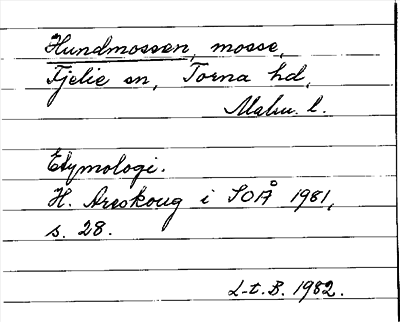 Hundmossen, mosse,
Fjelie sn, Torna hd,
Malm. l.
Etymologi.
H. Areskoug i SOÅ 1981,
s. 28.
L-t. B. 1982.